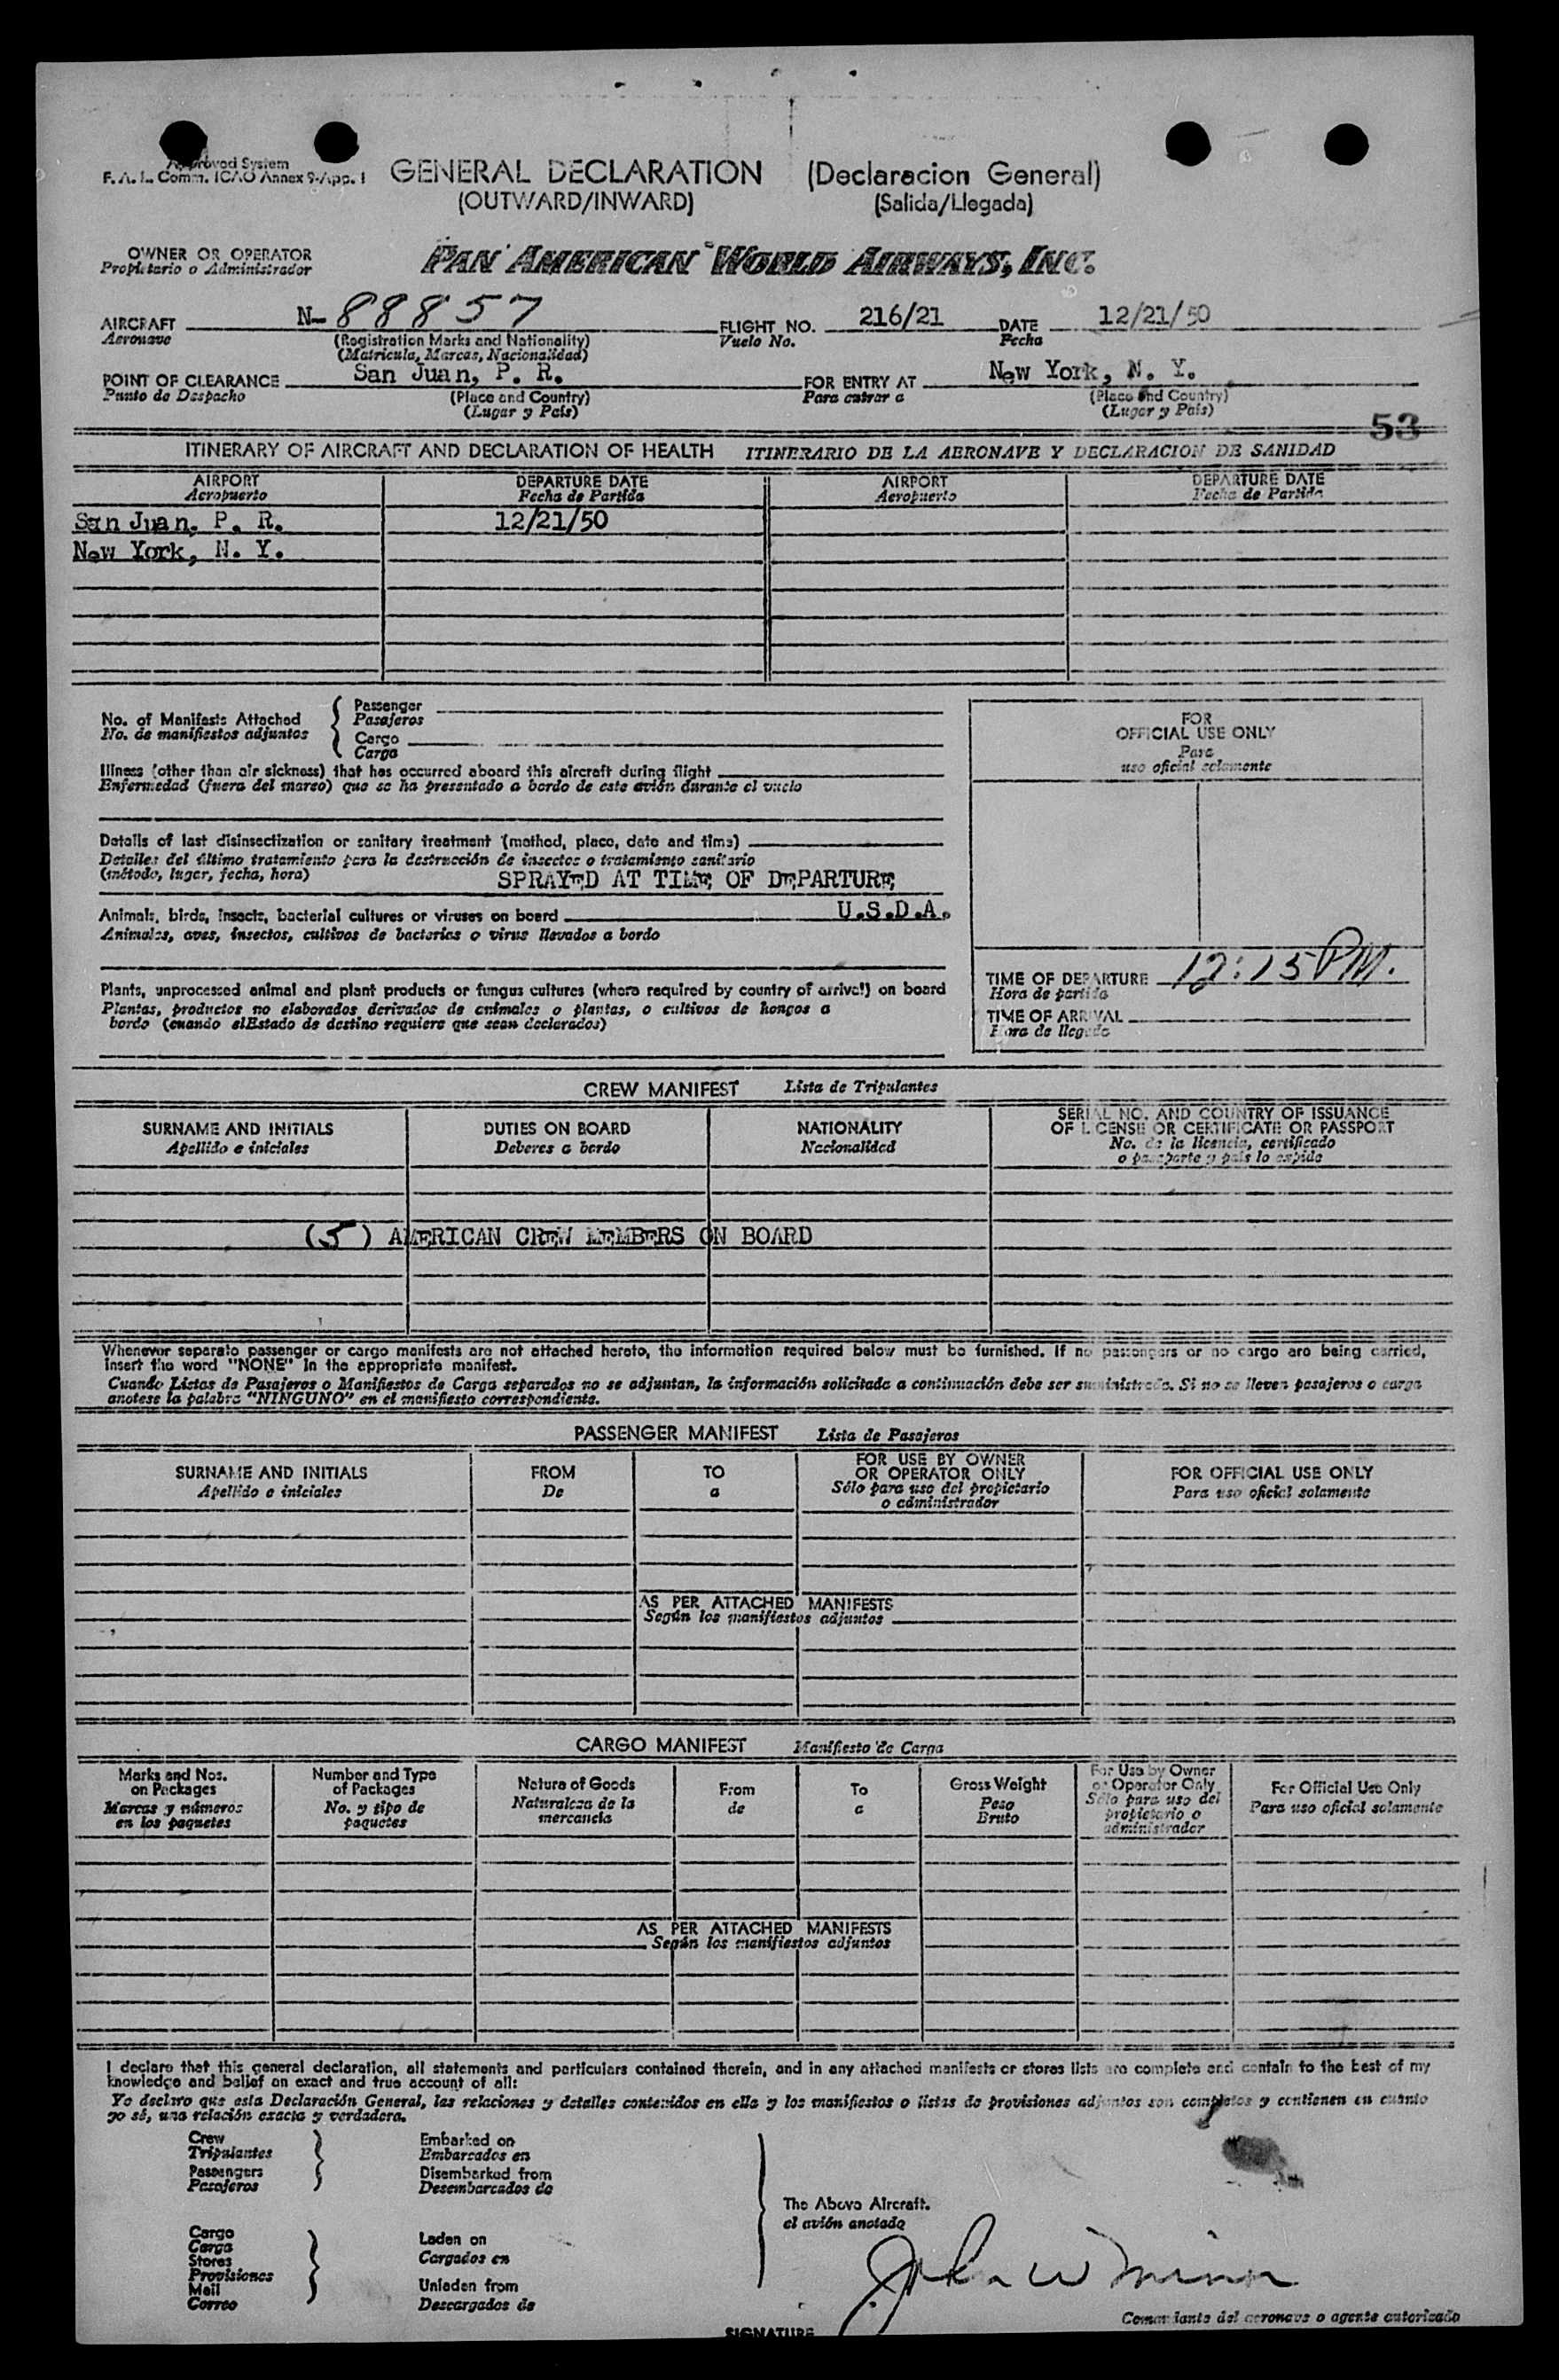 Approved System
F. A. L. Comm. ICAO Annex 9-App. 1
GENERAL DECLARATION (Declaracion General)
(OUTWARD/INWARD) (Salida/Llegada)
OWNER OR OPERATOR
Propietario o Administrador
PAN AMERICAN WORLD AIRWAYS, INC.
AIRCRAFT N-88857 FLIGHT NO. 216/21 DATE 12/21/50
Aeronave (Registration Marks and Nationality) Vuelo No. Fecha
(Matricula, Marcas, Nacionalidad)
POINT OF CLEARANCE San Juan, P. R. FOR ENTRY AT New York, N. Y.
Punto de Despacho (Place and Country) Para entrar a (Place and Country)
(Lugar y País) (Lugar y País)
53
ITINERARY OF AIRCRAFT AND DECLARATION OF HEALTH ITINERARIO DE LA AERONAVE Y DECLARACION DE SANIDAD
AIRPORT DEPARTURE DATE AIRPORT DEPARTURE DATE
Aeropuerto Fecha de Partida Aeropuerto Fecha de Partida
San Juan, P. R. 12/21/50
New York, N. Y.
No. of Manifests Attached
No. de manifiestos adjuntos
Passenger
Pasajeros
Cargo
Carga
FOR
OFFICIAL USE ONLY
Para
uso oficial solamente
Illness (other than air sickness) that has occurred aboard this aircraft during flight
Enfermedad (fuera del mareo) que se ha presentado a bordo de este avión durante el vuelo
Details of last disinsectization or sanitary treatment (method, place, date and time)
Detalles del último tratamiento para la destrucción de insectos o tratamiento sanitario
(método, lugar, fecha, hora) SPRAYED AT TIME OF DEPARTURE
Animals, birds, insects, bacterial cultures or viruses on board U.S.D.A.
Animales, aves, insectos, cultivos de bacterias o virus llevados a bordo
Plants, unprocessed animal and plant products or fungus cultures (where required by country of arrival) on board
Plantas, productos no elaborados derivados de animales o plantas, o cultivos de hongos a
bordo (cuando elEstado de destino requiere que sean declarados)
TIME OF DEPARTURE 12:15 PM.
Hora de partida
TIME OF ARRIVAL
Hora de llegada
CREW MANIFEST Lista de Tripulantes
SURNAME AND INITIALS DUTIES ON BOARD NATIONALITY SERIAL NO. AND COUNTRY OF ISSUANCE
OF LICENSE OR CERTIFICATE OR PASSPORT
Apellido e iniciales Deberes a bordo Nacionalidad No. de la licencia, certificado
o pasaporte y país lo expide
(5) AMERICAN CREW MEMBERS ON BOARD
Whenever separate passenger or cargo manifests are not attached hereto, the information required below must be furnished. If no passengers or no cargo are being carried,
insert the word "NONE" in the appropriate manifest.
Cuando Listas de Pasajeros o Manifiestos de Carga separados no se adjuntan, la información solicitada a continuación debe ser suministrada. Si no se lleven pasajeros o carga
anotese la palabra "NINGUNO" en el manifiesto correspondiente.
PASSENGER MANIFEST Lista de Pasajeros
SURNAME AND INITIALS FROM TO FOR USE BY OWNER
OR OPERATOR ONLY FOR OFFICIAL USE ONLY
Apellido e iniciales De a Sólo para uso del propietario
o administrador Para uso oficial solamente
AS PER ATTACHED MANIFESTS
Según los manifiestos adjuntos
CARGO MANIFEST Manifiesto de Carga
Marks and Nos.
on Packages
Marcas y números
en los paquetes
Number and Type
of Packages
No. y tipo de
paquetes
Nature of Goods
Naturaleza de la
mercancía
From
de
To
a
Gross Weight
Peso
Bruto
For Use by Owner
or Operator Only
Sólo para uso del
propietario o
administrador
For Official Use Only
Para uso oficial solamente
AS PER ATTACHED MANIFESTS
Según los manifiestos adjuntos
I declare that this general declaration, all statements and particulars contained therein, and in any attached manifests or stores lists are complete and contain to the best of my
knowledge and belief an exact and true account of all:
Yo declaro que esta Declaración General, las relaciones y detalles contenidos en ella y los manifiestos o listas de provisiones adjuntos son completos y contienen en cuanto
yo sé, una relación exacta y verdadera.
Crew
Tripulantes
Passengers
Pasajeros
Embarked on
Embarcados en
Disembarked from
Desembarcados de
Cargo
Carga
Stores
Provisiones
Mail
Correo
Laden on
Cargados en
Unladen from
Descargados de
The Above Aircraft.
el avión anotado
John W
Comandante del aeronave o agente autorizado
SIGNATURE